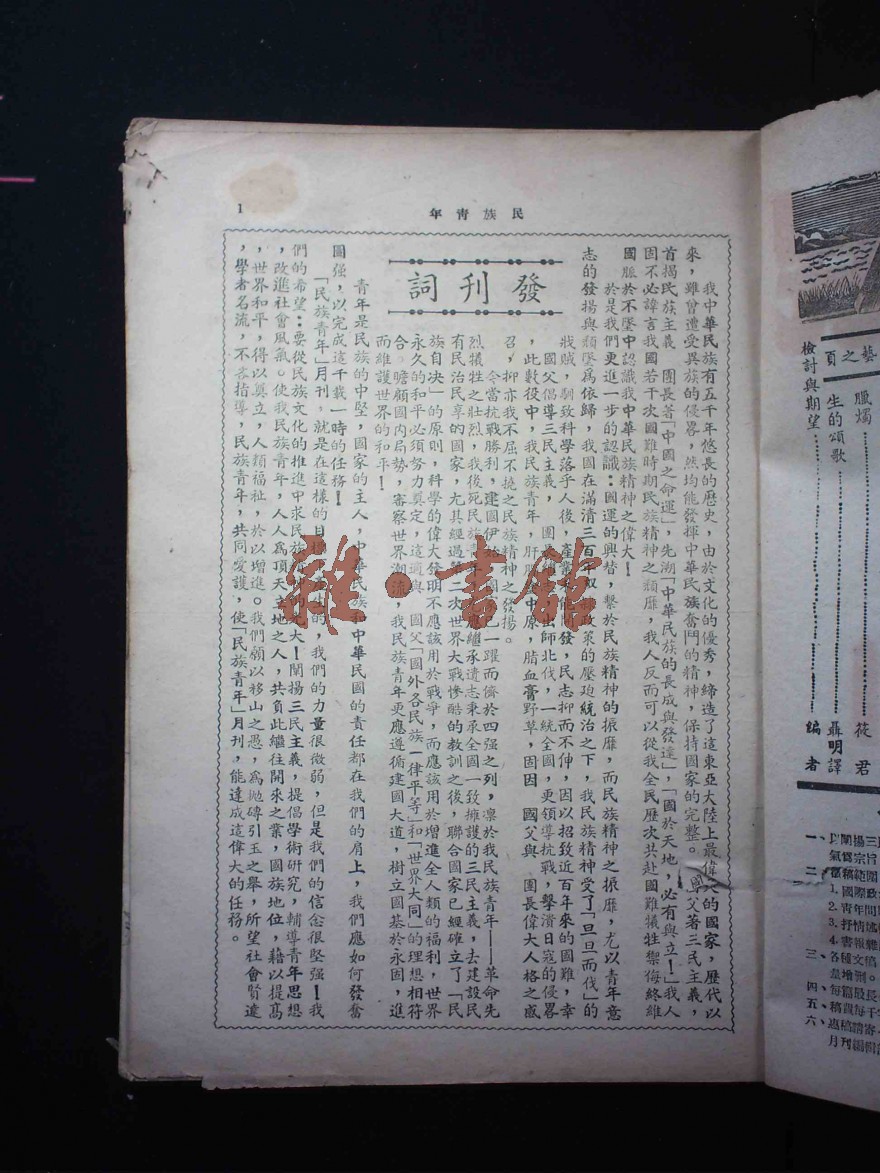 民族青年
1
發刊詞
我中華民族有五千年悠長的歷史，由於文化的優秀，締造了這東亞大陸上最偉大的國家，歷代以
來，雖曾遭受異族的侵畧，然均能發揮中華民族奮鬥的精神，保持國家的完整。國父著三民主義，
首揭民族主義　團長著「中國之命運」，先溯「中華民族的長成與發達」，「國於天地，必有與立！」我人
因不必諱言我國若干次國難時期民族精神之頹靡，我人反而可以從我全民歷次共赴國難犧牲禦侮終維
國脈於不墜中認識我中華民族精神之偉大！
於是我們更進一步的認識：國運的興替，繫於民族精神的振靡，而民族精神之振靡，尤以青年意
志的發揚與頹墜爲依歸，我國在滿清三百年政策的壓廹統治之下，我民族精神受了「旦旦而伐」的
戕賊，馴致科學落乎人後，產業發，民志抑而不伸，因以招致近百年來的國難，幸
國父倡導三民主義，　團長出師北伐，一統全國，更領導抗戰，擊潰日寇的侵畧
，此數役中，我民族青年，肝腦中原，脂血膏野草，固因　國父與　團長偉大人格之感
召，抑亦我不屈不撓之民族精神之發揚。
今當抗戰勝利，建國伊始，國已一躍而儕於四强之列，凛於我民族青年——革命先
烈犧牲之壯烈，我後死民族青年應繼承遺志秉承全國一致擁護的三民主義，去建設民
有民治民享的國家，尤其經過第二次世界大戰慘酷的教訓之後，聯合國家已經確立了「民
族自决」的原則，科學的偉大發明不應該用於戰爭，而應該用於增進全人類的福利，世界
永久的和平必須努力奠定，這適與　國父「國外各民族一律平等」和「世界大同」的理想相符
合。瞻顧國內局勢，審察世界潮流，我民族青年更應遵循建國大道，樹立國基於永固，進
而維護世界的和平！
青年是民族的中堅，國家的主人，中華民族和中華民國的責任都在我們的肩上，我們應如何發奮
圖强，以完成這千載一時的任務！
「民族青年」月刊，就是在這樣的目標產生的，我們的力量很微弱，但是我們的信念很堅强！我
們的希望：要從民族文化的推進中求民族精神的光大！闡揚三民主義，提倡學術研究，輔導青年思想
，改進社會風氣。使我民族青年，人人爲頂天立地之人，共負此繼往開來之業，國族地位，藉以提高
，世界和平，得以奠立，人類福祉，於以增進。我們願以移山之愚，爲拋磚引玉之舉，所望社會賢達
，學者名流，不吝指導，民族青年，共同愛護，使「民族青年」月刊，能達成這偉大的任務。
雜·書館
藝之頁
臘燭……筱君
生的頌歌……聶明譯
檢討與期望……編者
一、以闡揚三
氣爲宗旨
二、徵稿範圍
1.國際政
2.青年問
3.抒情
4.書報
三、各種文稿
是增删。
四、每篇最長
五、稿費每千
六、惠稿請寄
月刊編輯